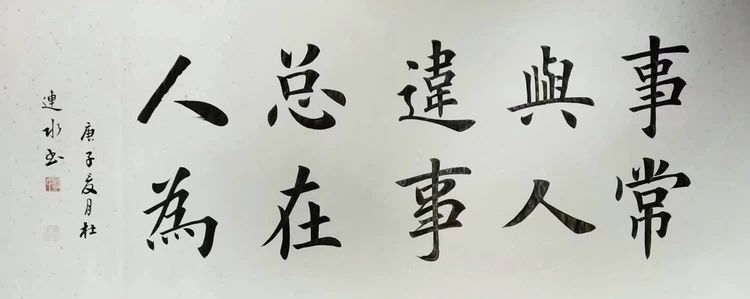 事常
與人
違事
总在
人為
庚子夏月杜
連水书